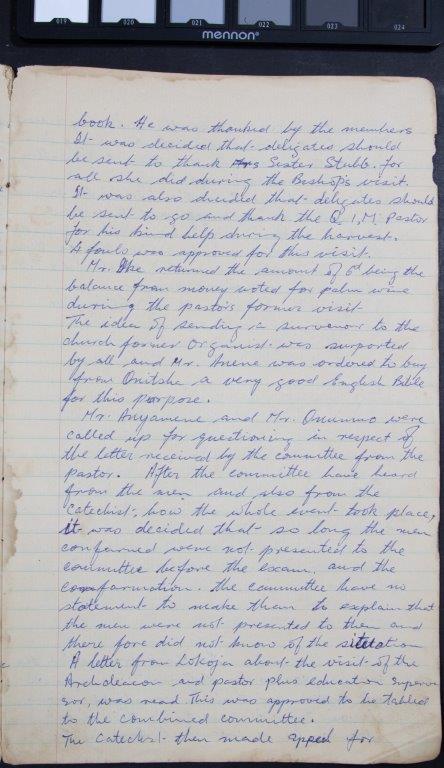 019 020 021 022 023 024
mennon
book. He was thanked by the members
It was decided that delegates should
be sent to thank Sister Stubb. for
all she did during the Beshop's visit.
It was also decided that delegates should
be sent to go and thank the Q.I.M Pastor
for his kind help during the harvest.
A fowls was approved for this visit.
Mr. Ike returned the amount of 6d being the
balance from money voted for palm wine
during the pastor's former visit
The idea of sending a survenor to the
church former Organist was surported
by all and Mr. Anene was ordered to buy
from Onitsha a very good English Bible
for this purpose.
Mr. Anyamene and Mr. were
called up for questioning in respect of
the letter received by the committee from the
pastor. After the committee have heard
from the men and also from the
Catechist, how the whole event took place,
it was decided that so long the men
confarned were not presented to the
committee before the exam. and the
comformation. the committee have no
statement to make than to explain that
the men were not presented to them and
there fore did not know of the situation
A letter from Lokoja about the visit of the
Archdeacon and pastor plus education Superv
sor, was read. This was approved to be tabled
to the combined committee.
The Catechist then made for